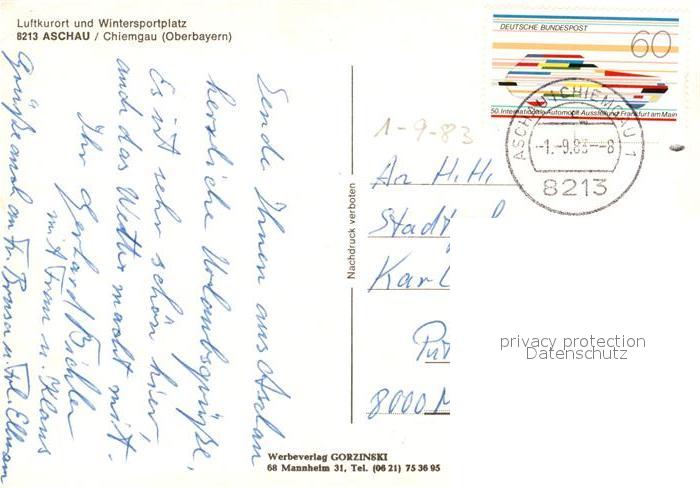 Luftkurort und Wintersportplatz
8213 ASCHAU / Chiemgau (Oberbayern)
DEUTSCHE BUNDESPOST
60
50. Internationale Automobil-Ausstellung Frankfurt am Main
ASCHAU (CHIEMGAU) 1
-1.-9.83--8
8213
1-9-83
Sende Ihnen aus Aschau
herzliche Urlaubsgrüße,
Es ist sehr schön hier,
auch das Wetter macht mit.
Ihr Gerhard
mit Frau u. Klaus
Grüße auch an Fr. u. Frl.
Nachdruck verboten
An H. H.
Stadt
Karl
8000 M
privacy protection
Datenschutz
Werbeverlag GORZINSKI
68 Mannheim 31, Tel. (06 21) 75 36 95